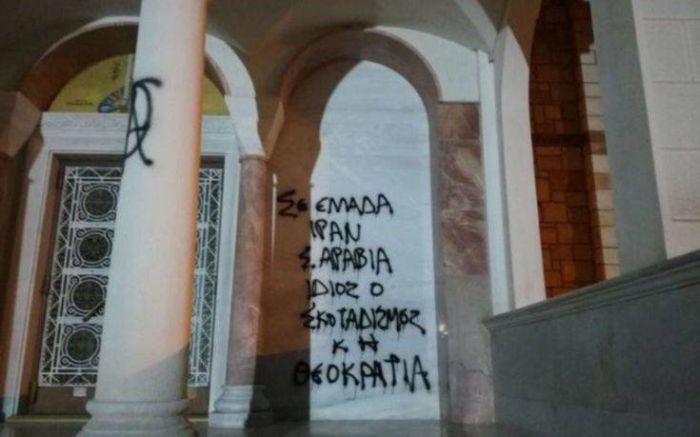 ΣΕ ΕΛΛΑΔΑ
ΙΡΑΝ
Σ.ΑΡΑΒΙΑ
ΙΔΙΟΣ Ο
ΣΚΟΤΑΔΙΣΜΟΣ
Κ Η
ΘΕΟΚΡΑΤΙΑ